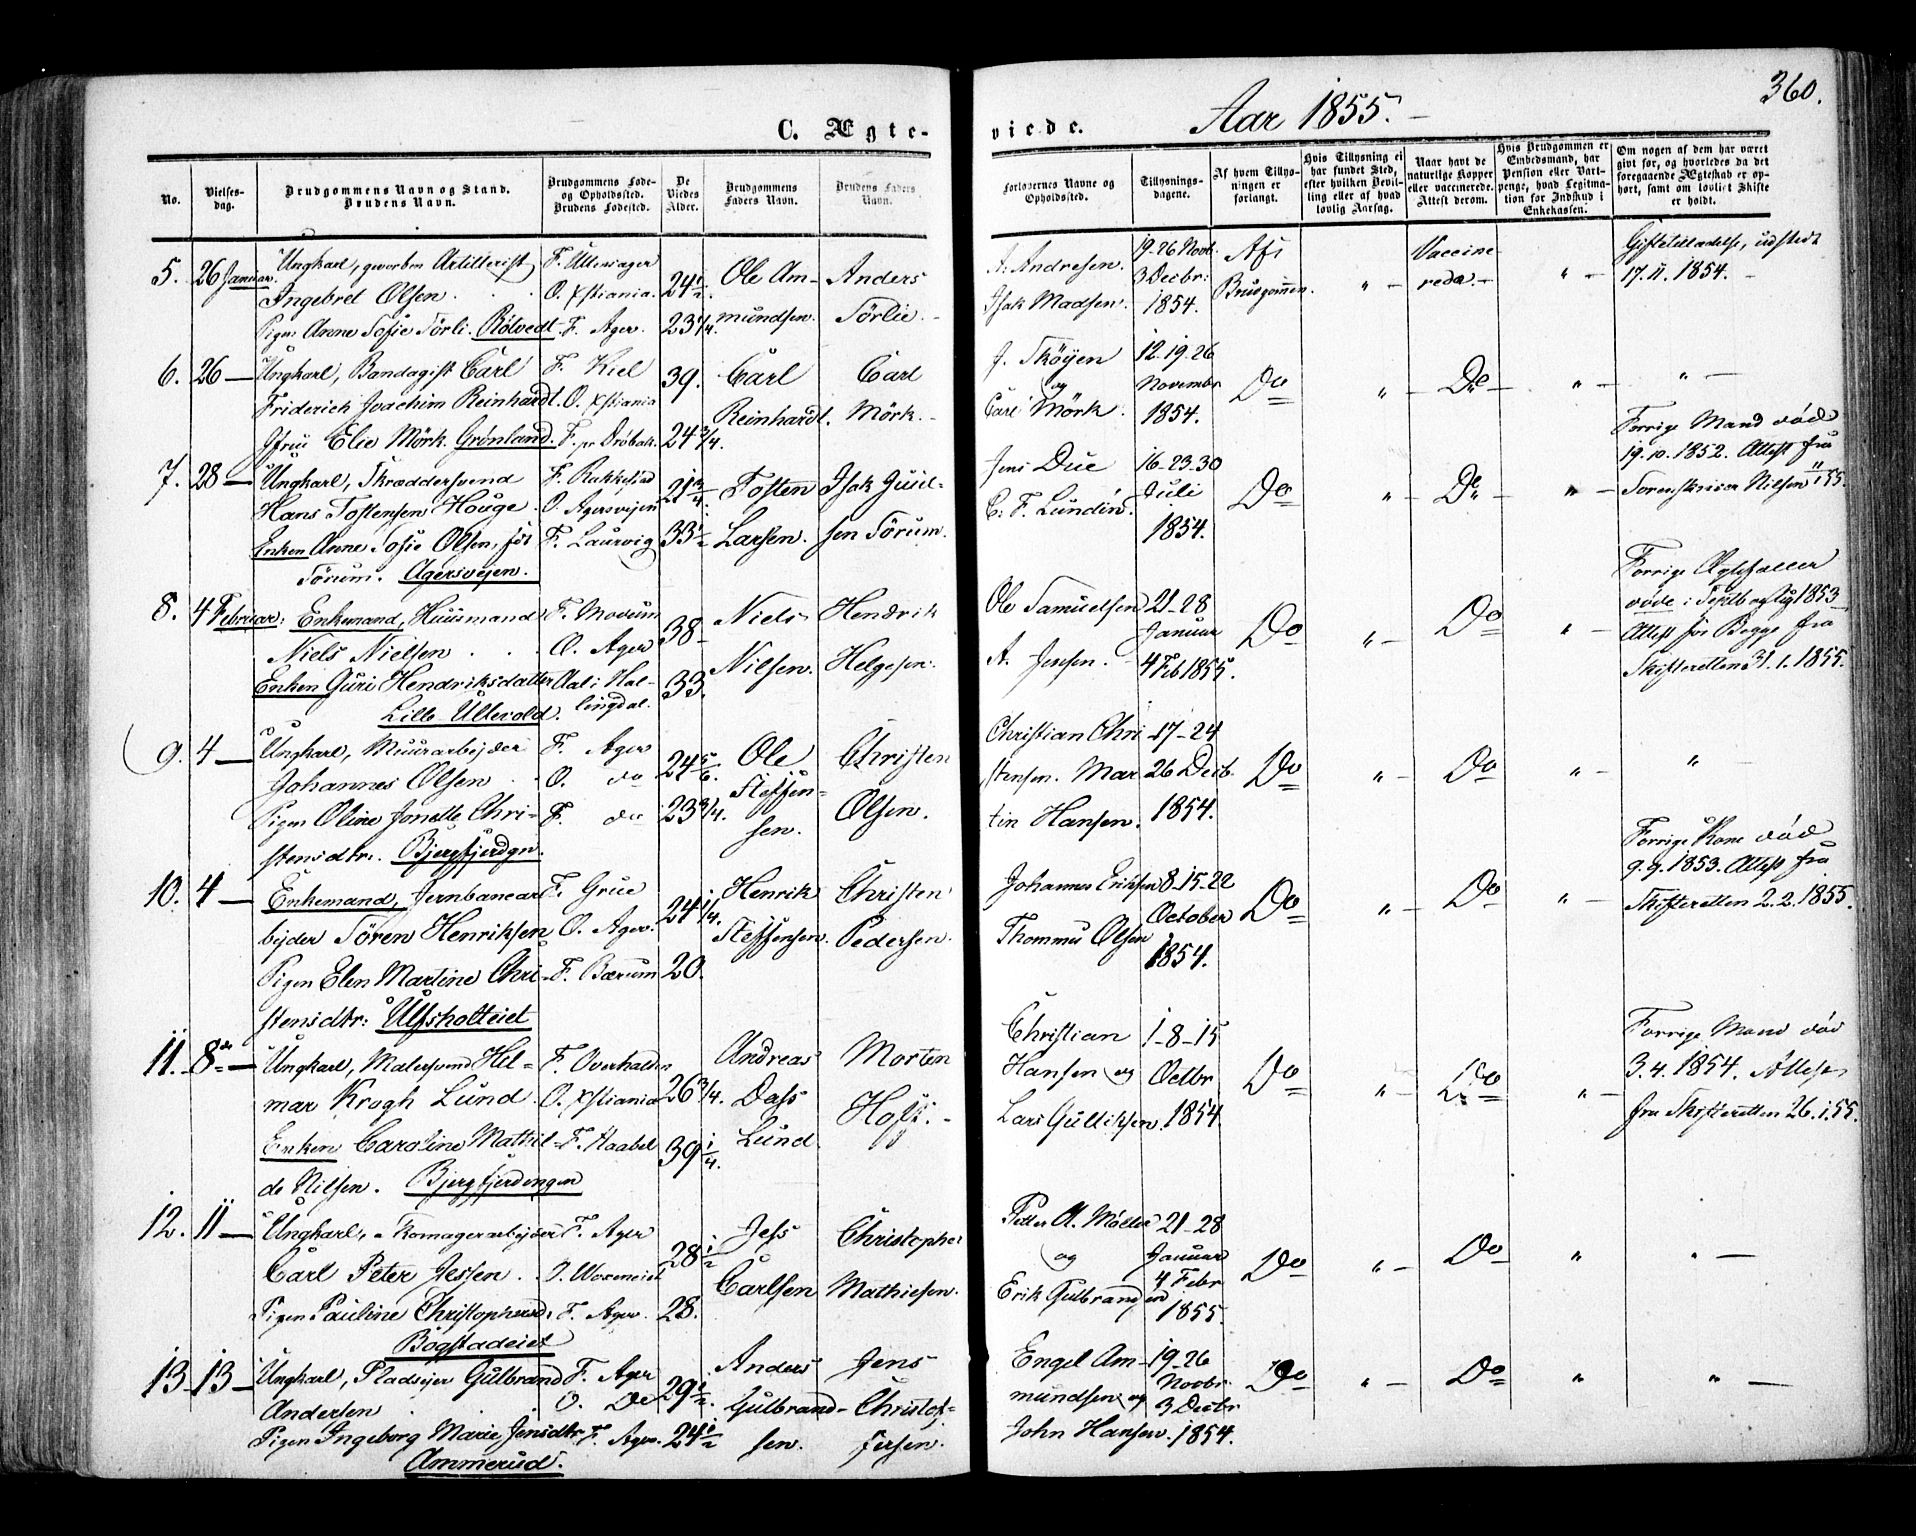 360.
C. Ægte-
viede. Aar 1855.
No.
Vielses-
dag.
Brudgommens Navn og Stand.
Brudens Navn.
Brudgommens Føde-
og Opholdssted.
Brudens Fødested.
De
Viedes
Alder.
Brudgommens
Faders Navn.
Brudens Faders
Navn.
Forlovernes Navne og
Opholdssted.
Tillysnings-
dagene.
Af hvem Tillys-
ningen er
forlangt.
Hvis Tillysning ei
har fundet Sted,
efter hvilken Bevil-
ling eller af hvad
lovlig Aarsag.
Naar havt de
naturlige Kopper
eller vaccinerede.
Attest derom.
Hvis Brudgommen er
Embedsmand, har
Pension eller Vart-
penge, hvad Legitima-
tion for Indskud i
Enkekassen.
Om nogen af dem har været
gift før, og hvorledes da det
foregaaende Ægteskab er op-
hørt, samt om lovligt Skifte
er holdt.
5. 26 Januar.
Ungkarl, gevorben Artillerist
Ingebret Olsen.
Pigen Anne Sofie Törli. Rölvedt
F. Ullensager
O. Xstiania.
F. Ager.
24 1/2.
23 1/4.
Ole Am-
mundsen.
Anders
Törlie.
A. Andresen.
Isak Madsen.
19-26 Novb.
3 Decbr:
1854.
Af
Brudgommen.
" -
Vaccine-
rede. -
" -
Giftetilladelse, udstedt
17.11.1854. -
6. 26 -
Ungkarl, Bandagist Carl
Friderich Joachim Reinhardt.
Jfru Elie Mörk. Grønland.
F. Kiel
O. Xstiania
F. pr Dröbak.
39.
24 3/4.
Carl
Reinhardt.
Carl
Mörk. -
J. Sköyen
og
Carl Mörk.
12-19-26
Novembr
1854.
Do
" -
Do -
" -
" -
7. 28 -
Ungkarl, Skræddersvend
Hans Tostensen Houge.
Enken Anne Sofie Olsen, föd
Törum. Agersvejen.
F. Rakkestad
O. Agersvejen
F. Laurvig
21 3/4.
33 1/2
Tosten
Larsen.
Isak Guul-
sen Törum.
Jens Due
C. F. Lundin.
16-23-30
Juli
1854.
Do
" -
Do -
" -
Forrige Mand død
19.10.1852. Attest fra
Sorenskriver Nilsen 55.
8. 4 Februar:
Enkemand, Huusmand
Niels Nielsen
Enken Guri Hendriksdatter
Lille Ullevold.
F. Modum
O. Ager
Aal i Hal-
lingdal.
38 -
33.
Niels
Nilsen.
Hendrik
Helgesen.
Ole Samuelsen
A. Jensen. -
21-28
Januar
4 Feb 1855.
Do
" -
Do
" -
Forrige Ægtefæller
døde i 1853
Attest for Begge fra
Skifteretten 31.1.1855.
9. 4 -
Ungkarl, Muurarbejder
Johannes Olsen
Pigen Oline Jonette Chri-
stensdtr. Bjergfjerdgn.
F. Ager
O. do
F. do
24 5/6.
23 3/4.
Ole
Steffen-
sen.
Christen
Olsen.
Christian Chri
stensen. Mar
tin Hansen.
17-24
26 Decb.
1854.
Do
" -
Do
" -
" -
10. 4 -
Enkemand, Jernbanear
bejder Sören Henriksen
Pigen Elen Martine Chri-
stensdtr: Ulfsholteiet
F. Grue
O. Ager.
F. Bærum
24 1/4.
20.
Henrik
Steffensen.
Christen
Pedersen.
Johannes Eriksen
Thommes Olsen
8-15-22
October
1854.
Do
" -
Do
" -
Forrige Kone død
9.9.1853. Attest fra
Skifteretten 2.2.1855.
11. 8de -
Ungkarl, Malersvend Hil-
mar Krogh Lund.
Enken Caroline Mathil-
de Nilsen. Bjergfjerdingen
F. Overhalden
O. Xstiania
F. Haabel
26 3/4.
39 1/4.
Andreas
Dass
Lund
Morten
Hoff. -
Christian
Hansen og
Lars Gullichsen.
1-8-15
Octbr
1854
Do
" -
Do
" -
Forrige Mand død
3.4.1854. Attest
fra Skifteretten 26.1.55.
12. 11 -
Ungkarl, Komagerarbejder
Carl Peter Jessen.
Pigen Pauline Christophersd.
Bogstadeiet
F. Ager
O. Voxeneiet
F. Ager.
28 1/2
28.
Jess
Carlsen
Christopher
Mathiesen.
Peter A. Möller
og
Erik Gulbrandsen
21-28
Januar
4 Febr
1855.
Do
" -
Do
"
" -
13. 13 -
Ungkarl, Pladsejer Gulbrand
Andersen
Pigen Ingeborg Marie Jensdtr
Ammerud.
F. Ager
O. Do
F. Ager.
29 1/2.
24 1/2
Anders
Gulbrand-
sen.
Jens
Christof-
fersen.
Engel Am-
mundsen og
John Hansen.
19-26
Novbr
3 Decbr
1854.
Do
" -
Do
"
" -